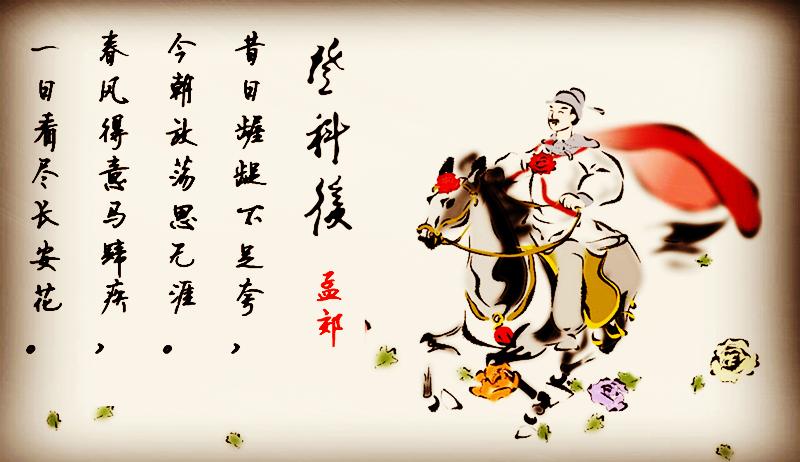 登科後
孟郊
昔日龌龊不足夸，
今朝放荡思无涯。
春风得意马蹄疾，
一日看尽长安花。